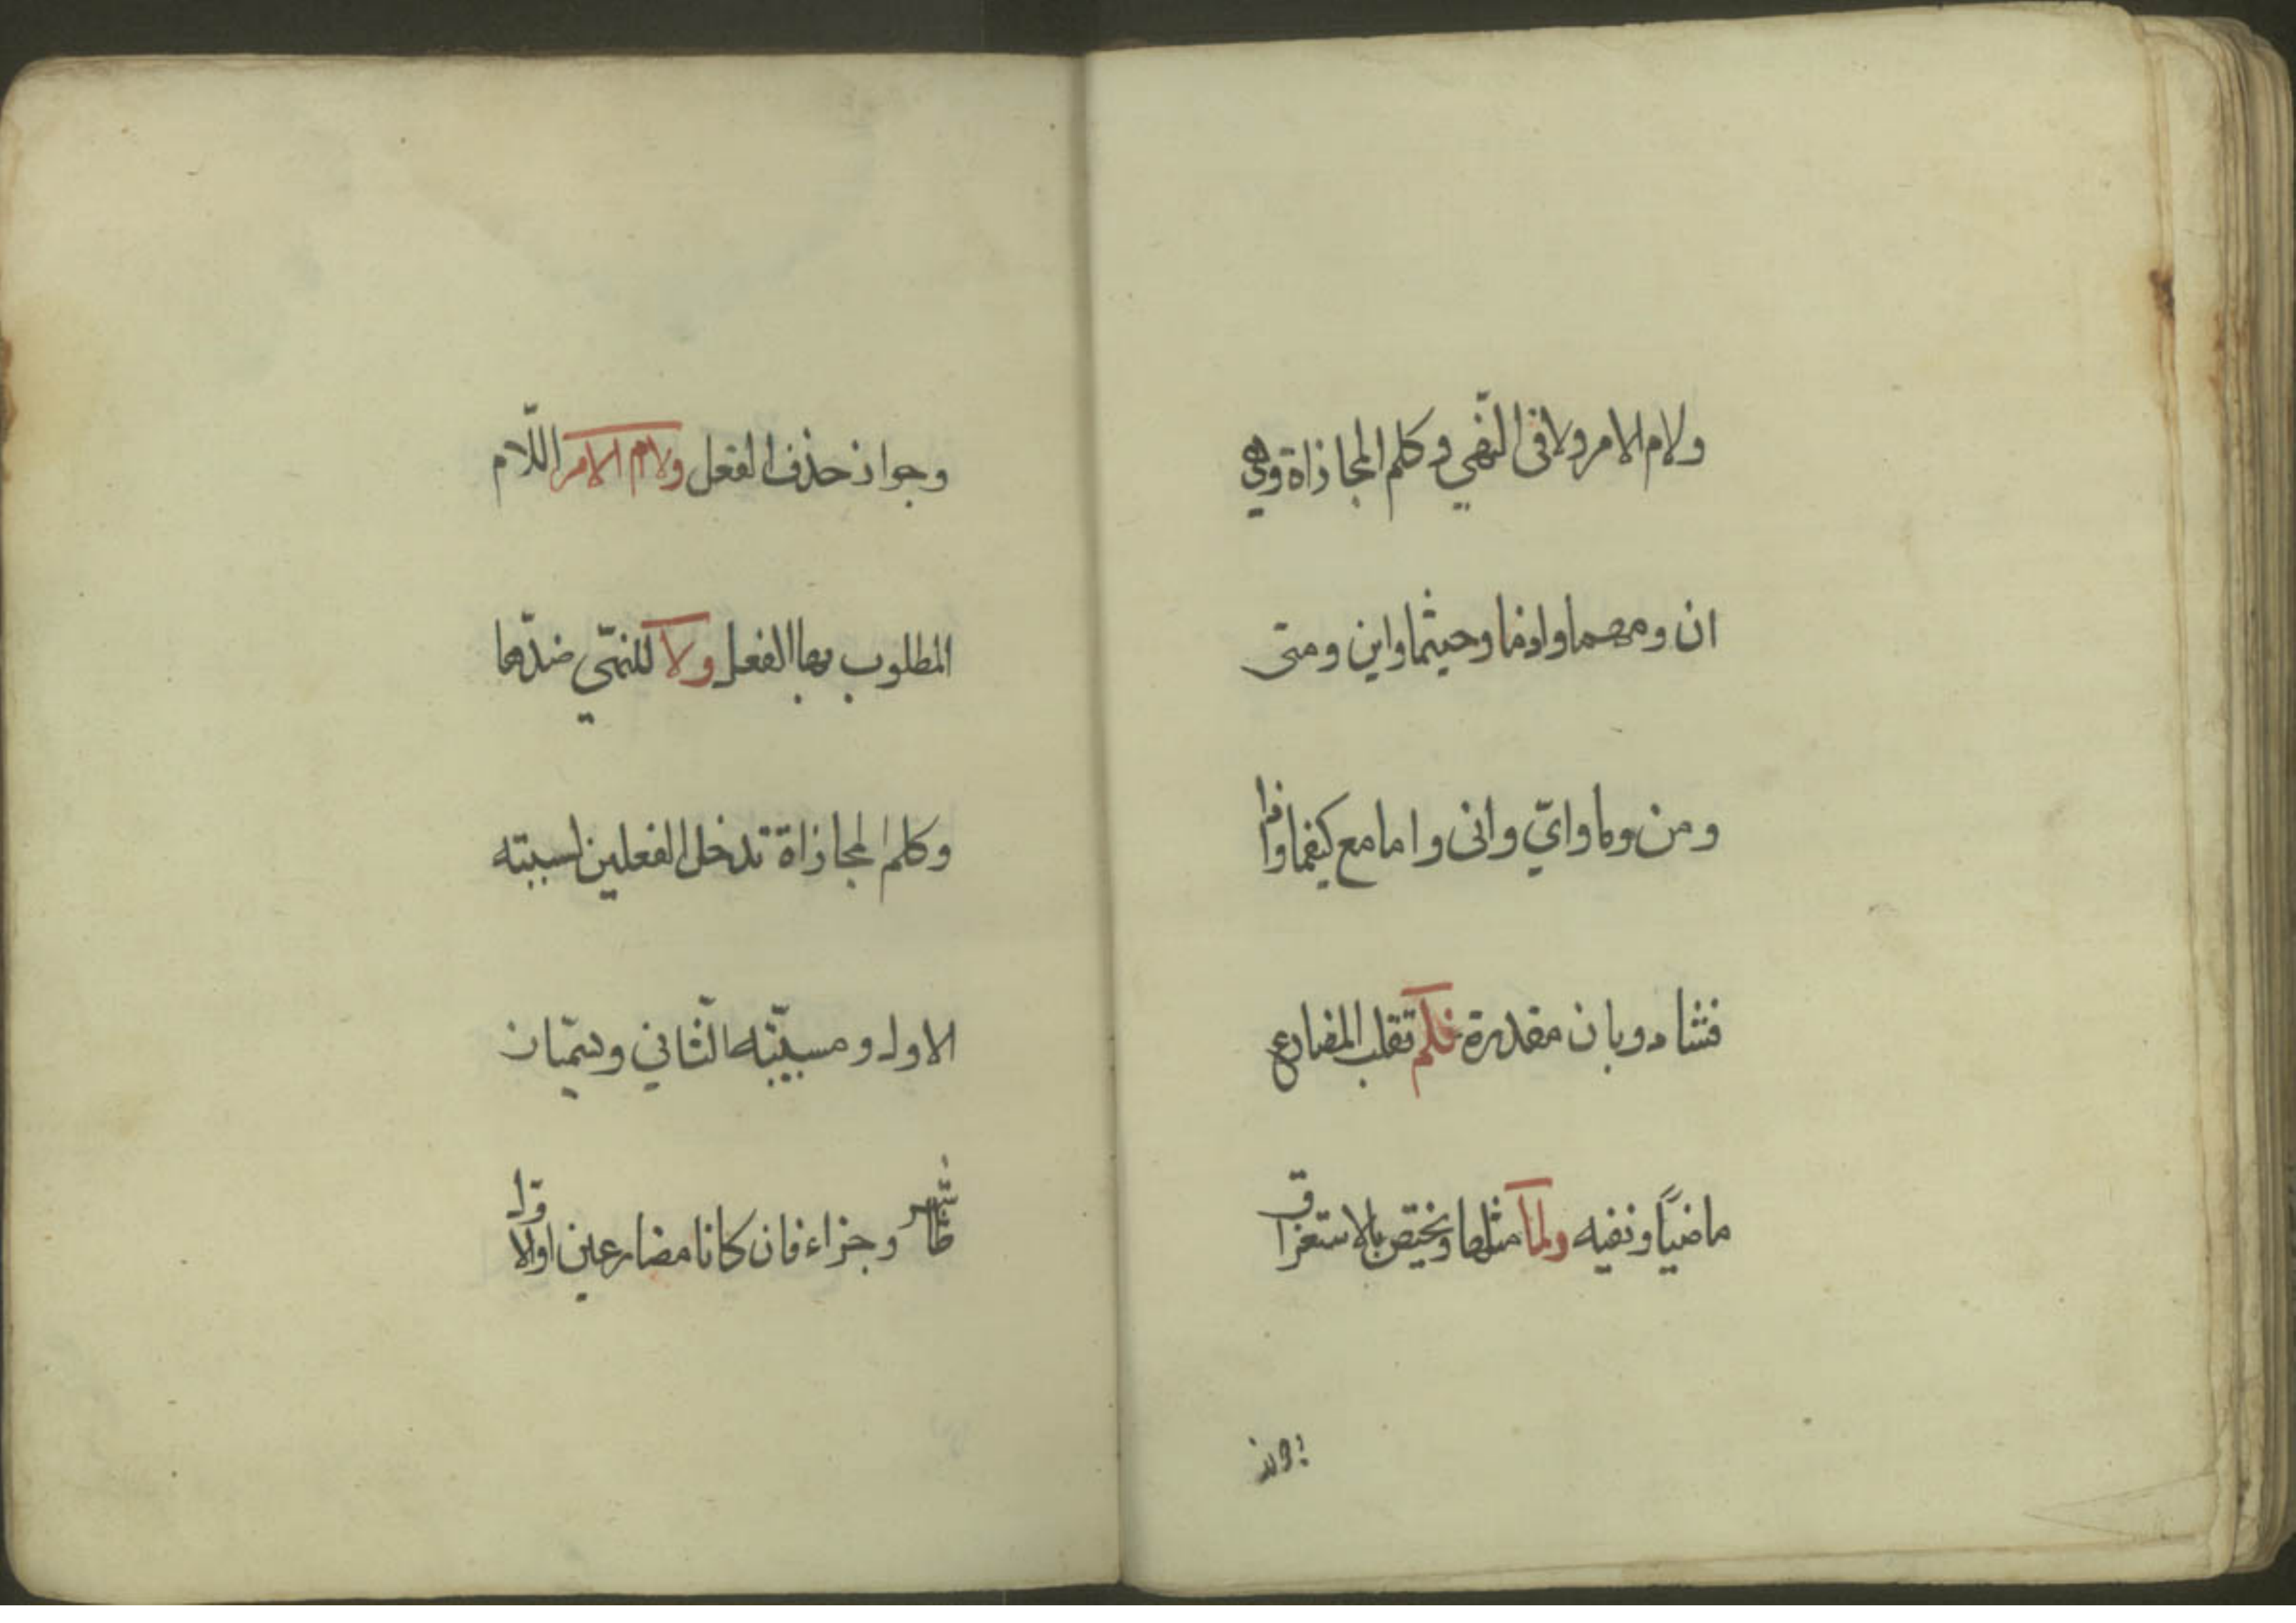 ولام الامر ولا فى النّهي وكلم المجازاة وهي
ان ومهما واذما وحيثما واين ومتى
ومن وما وايّ وانى واما مع كيفما واذا
فشاذ وبان مقدرة فلم تقلب المضارع
ماضيًا ونفيه ولما مثلها ويختص بالاستغراق
وجواز حذف الفعل ولام الامر اللّام
المطلوب بها الفعل ولا للنهّي ضدّها
وكلم المجازاة تدخل الفعلين لسببيّة
الاول ومسبّبيّة الثّاني ويسمّيان
شرطا وجزاء فان كانا مضارعين او الاول